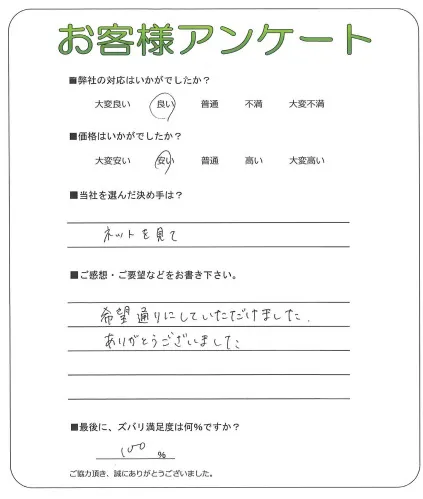 お客様アンケート
■弊社の対応はいかがでしたか？
大変良い 良い 普通 不満 大変不満
■価格はいかがでしたか？
大変安い 安い 普通 高い 大変高い
■当社を選んだ決め手は？
ネットを見て
■ご感想・ご要望などをお書き下さい。
希望通りにしていただけました.
ありがとうございました
■最後に、ズバリ満足度は何％ですか？
100 ％
ご協力頂き、誠にありがとうございました。